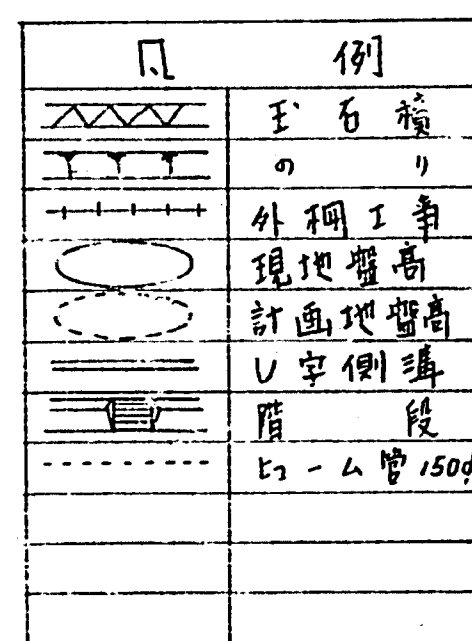 凡例
玉石積
のり
外柵工事
現地盤高
計画地盤高
U字側溝
階段
ヒューム管150φ